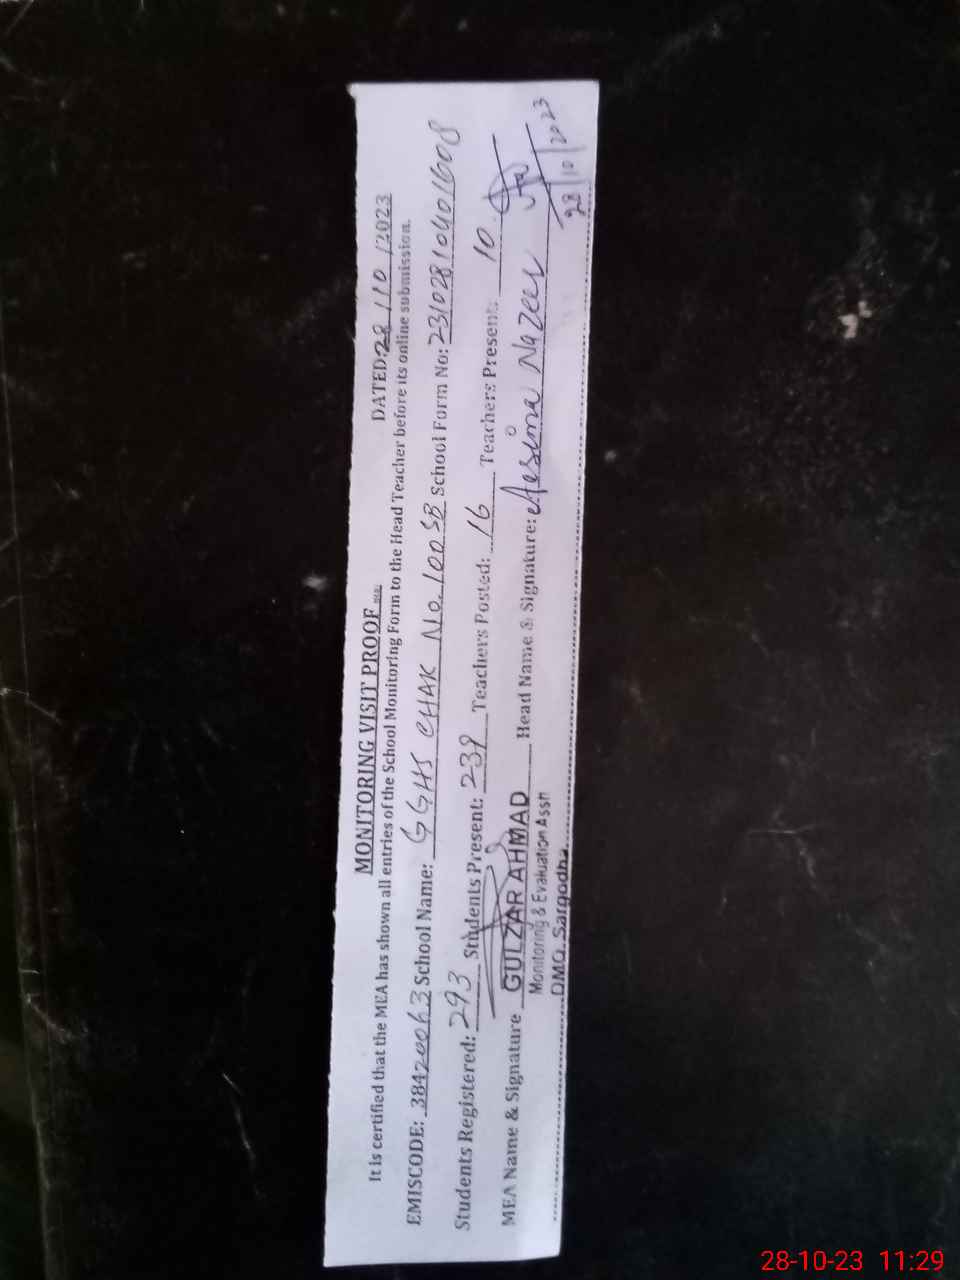 MONITORING VISIT PROOF
DATED:28/10/2023
It is certified that the MEA has shown all entries of the School Monitoring Form to the Head Teacher before its online submission.
EMISCODE: 38420063 School Name: GGHS CHAK NO. 100 SB School Form No: 231028104016008
Students Registered: 293 Students Present: 239 Teachers Posted: 16 Teachers Present: 10
MEA Name & Signature GULZAR AHMAD Head Name & Signature: Aesima Nazeer
Monitoring & Evaluation Asstt
DMO. Sargodha
28/10/2023
28-10-23 11:29